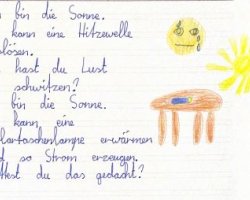 bin die Sonne.
kann eine Hitzewelle
lösen.
hast du Lust
schwitzen?
bin die Sonne.
kann eine
lartaschenlampe erwärmen
d so Strom erzeugen.
test du das gedacht?